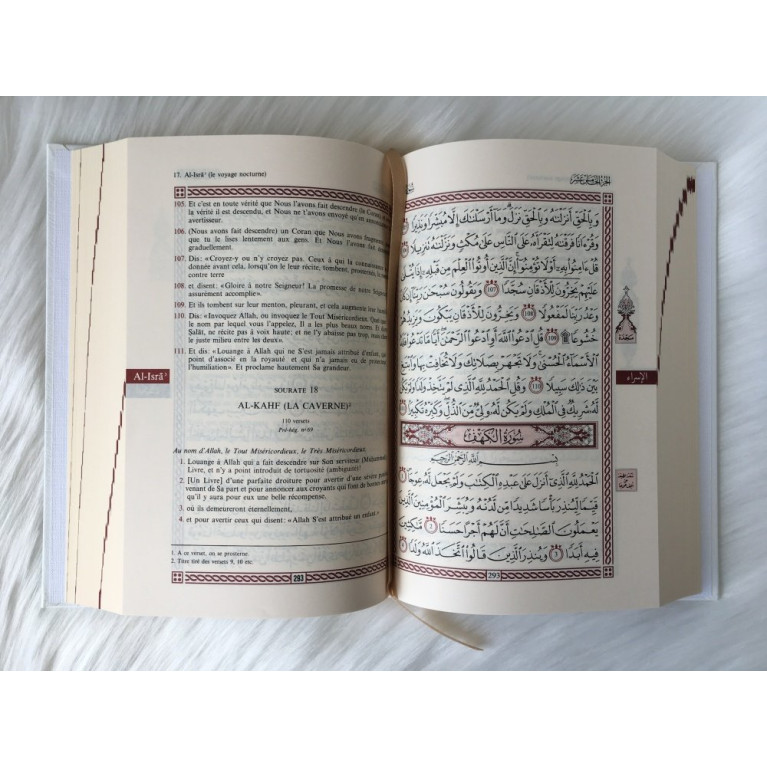 17. Al-Isrâ' (le voyage nocturne)
105. Et c'est en toute vérité que Nous l'avons fait descendre (le Coran,
la vérité il est descendu, et Nous ne t'avons envoyé qu'en annoncia
avertisseur.
106. (Nous avons fait descendre) un Coran que Nous avons fragmen
que tu le lises lentement aux gens. Et Nous l'avons fait
graduellement.
107. Dis: «Croyez-y ou n'y croyez pas. Ceux à qui la connaissance
donnée avant cela, lorsqu'on le leur récite, tombent, prosternés,
contre terre
108. et disent: «Gloire à notre Seigneur! La promesse de notre Seigneur
assurément accomplie».
109. Et ils tombent sur leur menton, pleurant, et cela augmente leur
110. Dis: «Invoquez Allah, ou invoquez le Tout Miséricordieux. Quel que
le nom par lequel vous l'appelez, Il a les plus beaux noms. Et dans
Salât, ne récite pas à voix haute; et ne l'y abaisse pas trop, mais
le juste milieu entre les deux».
111. Et dis: «Louange à Allah qui ne S'est jamais attribué d'enfant,
point d'associé en la royauté et qui n'a jamais eu de protecteur
l'humiliation». Et proclame hautement Sa grandeur.
Al-Isrâ'
SOURATE 18
AL-KAHF (LA CAVERNE)²
110 versets
Pré-hég. n°69
Au nom d'Allah, le Tout Miséricordieux, le Très Miséricordieux.
1. Louange à Allah qui a fait descendre sur Son serviteur (Muhammad)
Livre, et n'y a point introduit de tortuosité (ambiguïté)!
2. [Un Livre] d'une parfaite droiture pour avertir d'une sévère
venant de Sa part et pour annoncer aux croyants qui font de bonnes
qu'il y aura pour eux une belle récompense,
3. où ils demeureront éternellement,
4. et pour avertir ceux qui disent: «Allah S'est attribué un enfant.»
1. A ce verset, on se prosterne.
2. Titre tiré des versets 9, 10 etc.
293
الجزء الخامس عشر
وَبِالْحَقِّ أَنزَلْنَاهُ وَبِالْحَقِّ نَزَلَ وَمَا أَرْسَلْنَاكَ إِلَّا مُبَشِّرًا وَنَذِيرًا
وَقُرْآنًا فَرَقْنَاهُ لِتَقْرَأَهُ عَلَى النَّاسِ عَلَىٰ مُكْثٍ وَنَزَّلْنَاهُ تَنزِيلًا
قُلْ آمِنُوا بِهِ أَوْ لَا تُؤْمِنُوا إِنَّ الَّذِينَ أُوتُوا الْعِلْمَ مِن قَبْلِهِ إِذَا يُتْلَىٰ
عَلَيْهِمْ يَخِرُّونَ لِلْأَذْقَانِ سُجَّدًا 107 وَيَقُولُونَ سُبْحَانَ رَبِّنَا إِن كَانَ
وَعْدُ رَبِّنَا لَمَفْعُولًا 108 وَيَخِرُّونَ لِلْأَذْقَانِ يَبْكُونَ وَيَزِيدُهُمْ
خُشُوعًا ۩ 109 قُلِ ادْعُوا اللَّهَ أَوِ ادْعُوا الرَّحْمَٰنَ أَيًّا مَّا تَدْعُوا فَلَهُ
الْأَسْمَاءُ الْحُسْنَىٰ وَلَا تَجْهَرْ بِصَلَاتِكَ وَلَا تُخَافِتْ بِهَا وَابْتَغِ
بَيْنَ ذَٰلِكَ سَبِيلًا 110 وَقُلِ الْحَمْدُ لِلَّهِ الَّذِي لَمْ يَتَّخِذْ وَلَدًا وَلَمْ يَكُن
لَّهُ شَرِيكٌ فِي الْمُلْكِ وَلَمْ يَكُن لَّهُ وَلِيٌّ مِّنَ الذُّلِّ وَكَبِّرْهُ تَكْبِيرًا
سُورَةُ الْكَهْفِ
بِسْمِ اللَّهِ الرَّحْمَٰنِ الرَّحِيمِ
الْحَمْدُ لِلَّهِ الَّذِي أَنزَلَ عَلَىٰ عَبْدِهِ الْكِتَابَ وَلَمْ يَجْعَل لَّهُ عِوَجًا
قَيِّمًا لِّيُنذِرَ بَأْسًا شَدِيدًا مِّن لَّدُنْهُ وَيُبَشِّرَ الْمُؤْمِنِينَ الَّذِينَ
يَعْمَلُونَ الصَّالِحَاتِ أَنَّ لَهُمْ أَجْرًا حَسَنًا 2 مَّاكِثِينَ
فِيهِ أَبَدًا 3 وَيُنذِرَ الَّذِينَ قَالُوا اتَّخَذَ اللَّهُ وَلَدًا
293
سَجْدَة
الإسراء